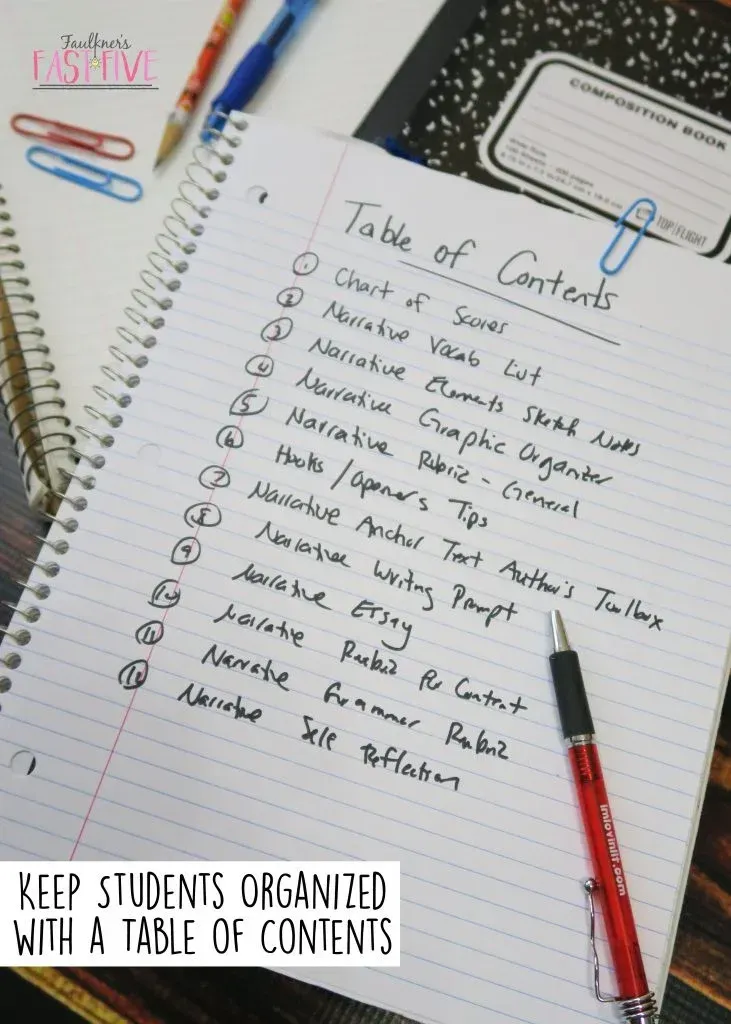 Faulkner's
FAST FIVE
COMPOSITION BOOK
TOP FLIGHT
Table of Contents
1 Chart of Scores
2 Narrative Vocab List
3 Narrative Elements Sketch Notes
4 Narrative Graphic Organizer
5 Narrative Rubric - General
6 Hooks / Openers Tips
7 Narrative Anchor Text Author's Toolbox
8 Narrative Writing Prompt
9 Narrative Essay
10 Narrative Rubric Per Contract
11 Narrative Grammar Rubric
12 Narrative Self Reflection
imlovinlit.com
KEEP STUDENTS ORGANIZED
WITH A TABLE OF CONTENTS